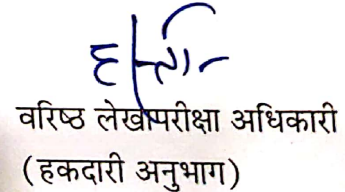 वरिष्ठ लेखापरीक्षा अधिकारी
(हकदारी अनुभाग)